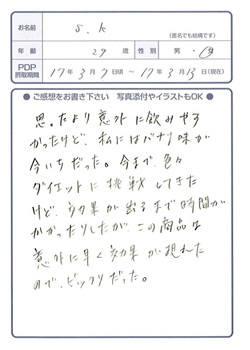 お名前 S.K
(匿名でも結構です)
年齢 29歳 性別 男・女
PDP摂取期間 17年3月9日頃 ～ 17年3月13日(現在)
● ご感想をお書き下さい 写真添付やイラストもOK ●
思ったより意外に飲みやす
かったけど、私にはバナナ味が
今いちだった。今まで、色々
ダイエットに挑戦してきた
けど、効果が出るまで時間が
かかったりしたが、この商品は
意外に早く効果が現れた
ので、ビックリだった。